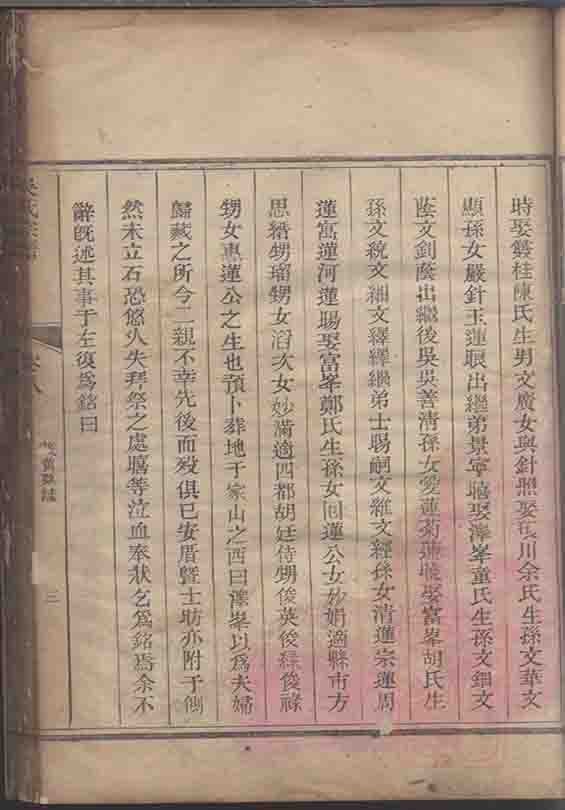 時娶雲桂陳氏生男文廣女與針照娶長川余氏生孫文華文
顯孫女嚴針玉蓮䀼出繼弟景寧嘻娶澤峯童氏生孫文鋼文
蔭文釗蔭出繼後吳吳善清孫女愛蓮菊蓮 娶富峯胡氏生
孫文統文細文繹繹繼弟士賜嗣文維文經孫女清蓮宗蓮周
蓮寓蓮河蓮賜娶富峯鄭氏生孫女回蓮公女妙娟適縣市方
思緒甥瑠甥女滔次女妙滿適四都胡廷侍甥俊英俊綠俊祿
甥女惠蓮公之生也預卜葬地于家山之西曰澤峯以爲夫婦
歸藏之所今二親不幸先後而歿俱已安厝暨士昉亦附于側
然未立石恐悠久失拜祭之處 等泣血奉狀乞爲銘焉余不
辭旣述其事于左復爲銘曰
吳氏宗
卷八
舊類誌
三